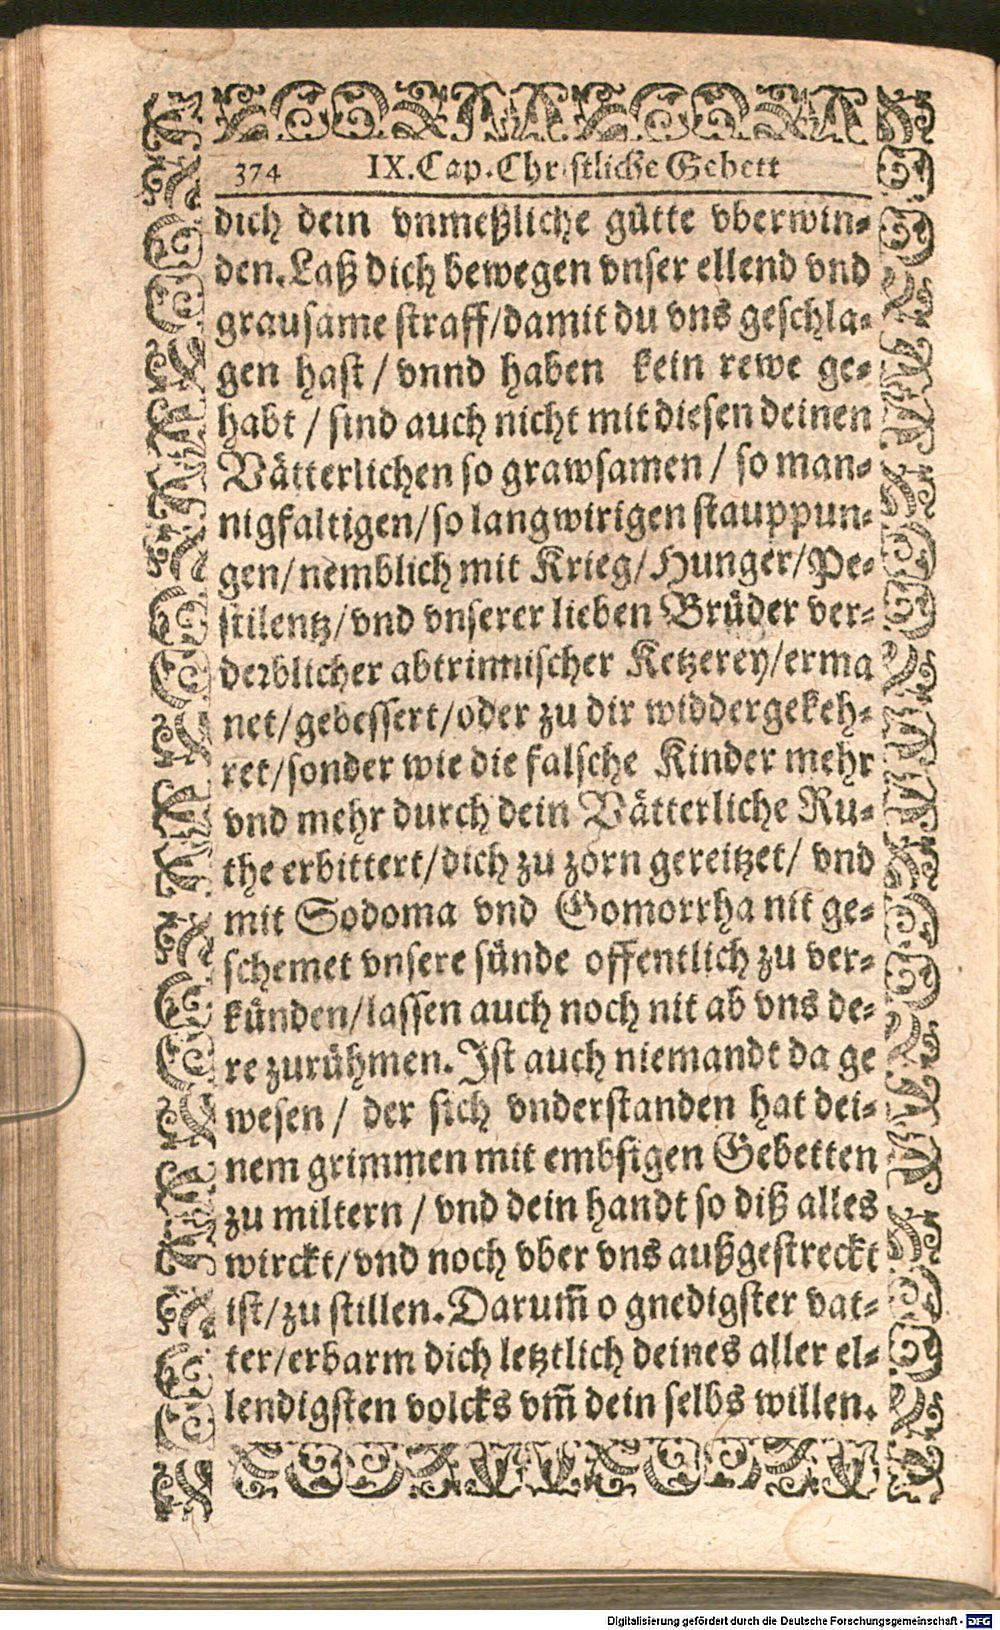 374 IX. Cap. Christliche Gebett
dich dein vnmeßliche gütte vberwin-
den. Laß dich bewegen vnser ellend vnd
grausame straff/damit du vns geschla-
gen hast / vnnd haben kein rewe ge-
habt / sind auch nicht mit diesen deinen
Vätterlichen so grawsamen / so man-
nigfaltigen/so langwirigen stauppun-
gen/nemblich mit Krieg/Hunger/Pe-
stilentz/vnd vnserer lieben Brüder ver-
derblicher abtrinnischer Ketzerey/erma
net/gebessert/oder zu dir widdergekeh-
ret/sonder wie die falsche Kinder mehr
vnd mehr durch dein Vätterliche Ru-
the erbittert/dich zu zorn gereitzet/ vnd
mit Sodoma vnd Gomorrha nit ge-
schemet vnsere sünde offentlich zu ver-
künden/lassen auch noch nit ab vns de-
re zurühmen. Ist auch niemandt da ge
wesen / der sich vnderstanden hat dei-
nem grimmen mit embsigen Gebetten
zu miltern / vnd dein handt so diß alles
wirckt/vnd noch vber vns außgestreckt
ist/zu stillen. Darum̄ o gnedigster vat-
ter/erbarm dich letztlich deines aller el-
lendigsten volcks vm̄ dein selbs willen.
Digitalisierung gefördert durch die Deutsche Forschungsgemeinschaft - DFG